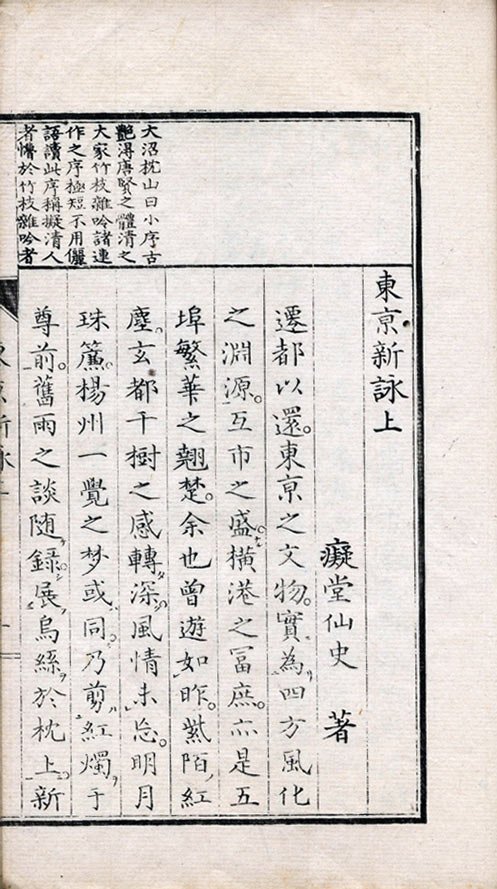 大沼枕山曰小序古
艷得唐賢之體清之
大家竹枝雜吟諸連
作之序極短不用儷
語讀此序稱擬清人
者懵於竹枝雜吟者
東亰新詠上
癡堂仙史 著
遷都以還。東亰之文物。實爲四方風化
之淵源。互市之盛。橫港之冨庶。亦是五
埠繁華之翹楚。余也曾遊如昨。紫陌紅
塵。玄都千樹之感轉深。風情未忘。明月
珠簾。楊州一覺之梦或同。乃剪紅燭于
尊前。舊雨之談随錄。展烏絲於枕上。新